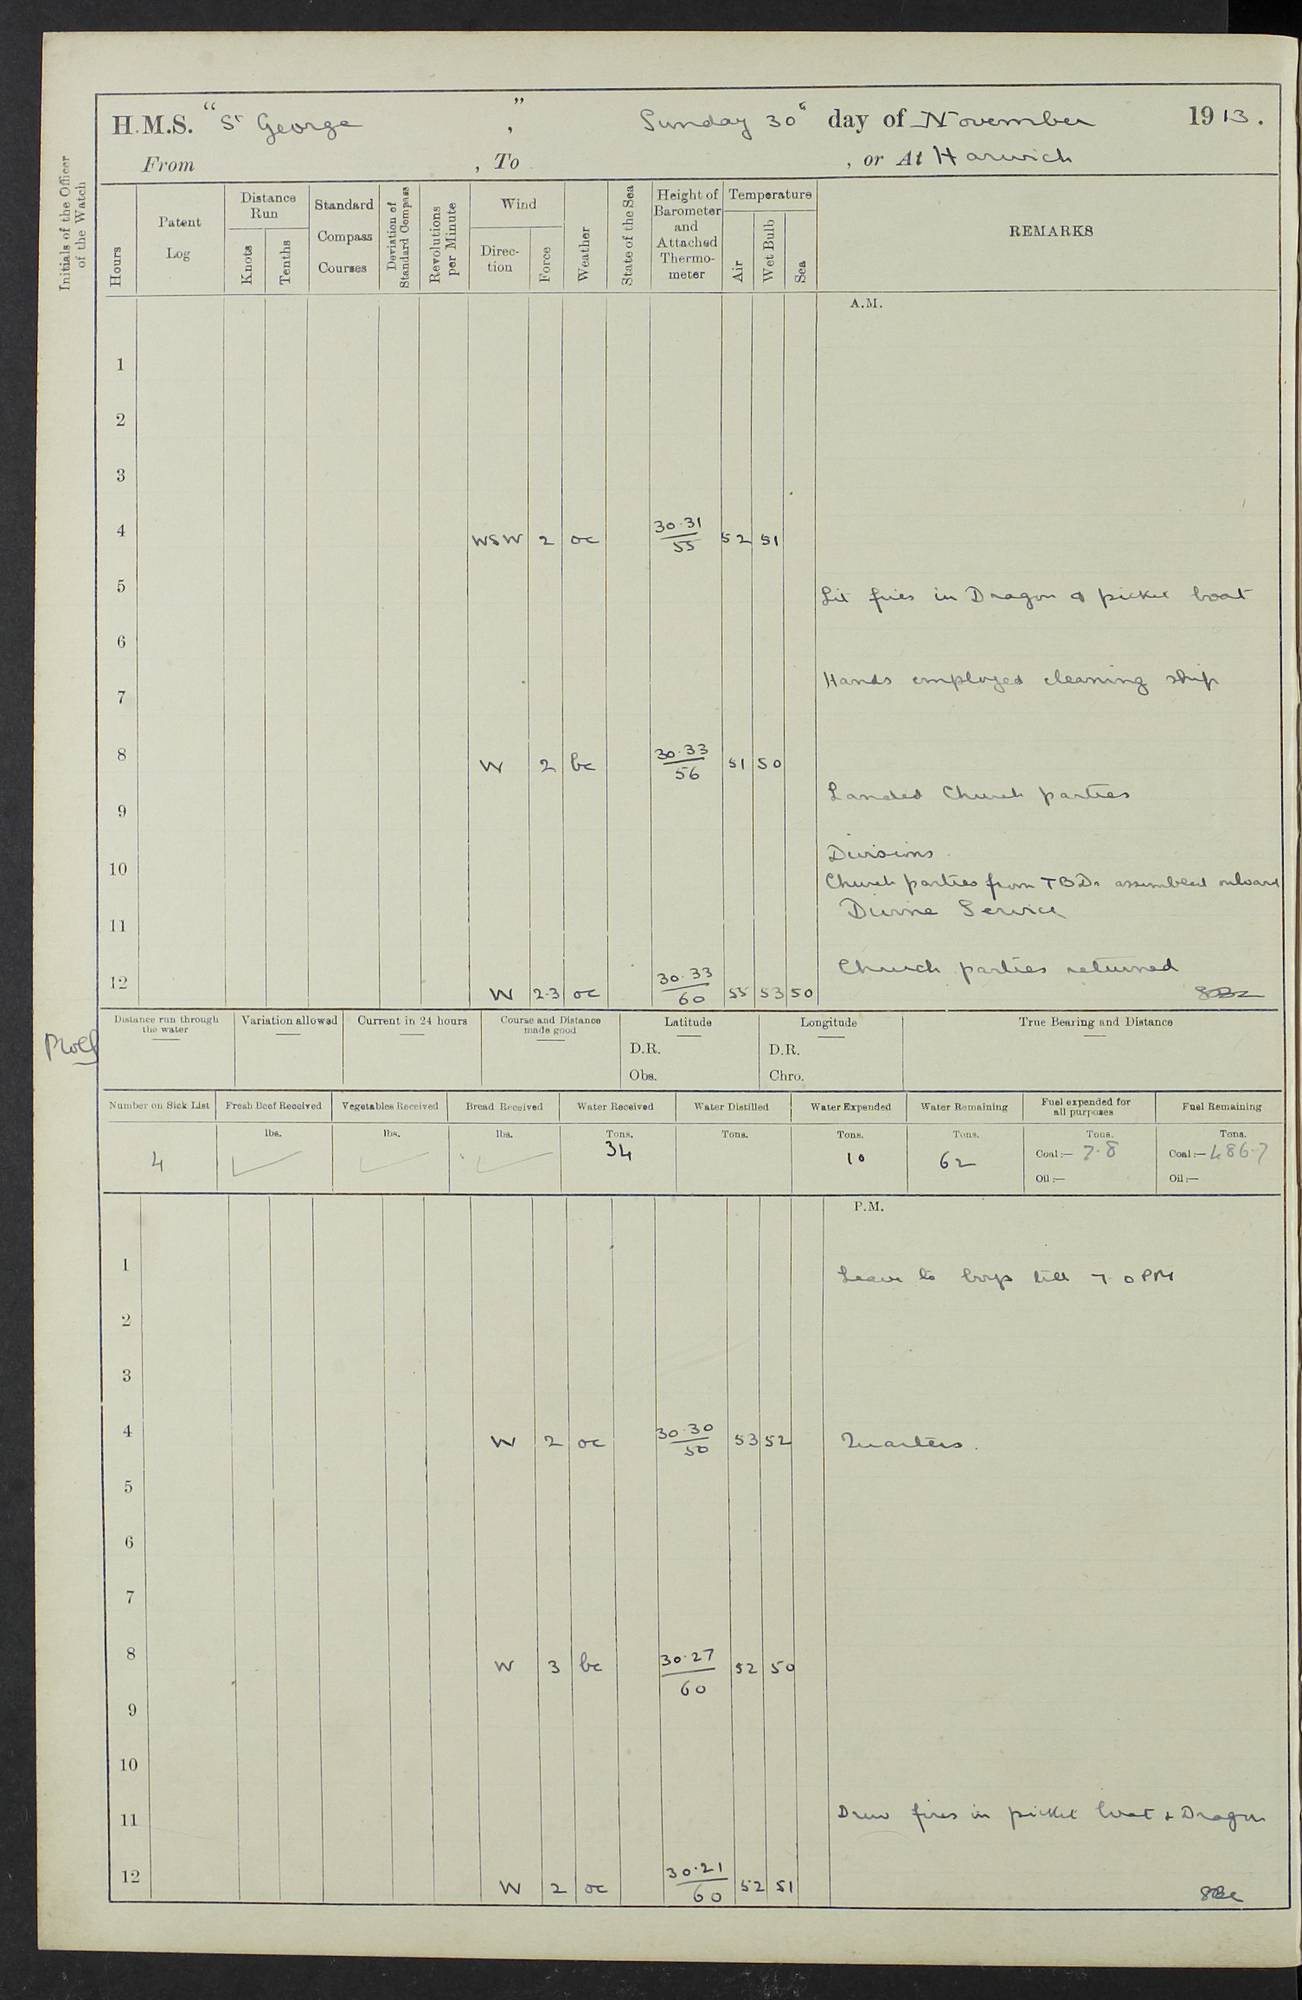 H.M.S. "St George", Sunday 30th day of November 1913.
From , To , or At Harwich
Initials of the Officer of the Watch
Hours
Patent Log
Distance Run
Knots
Tenths
Standard Compass Courses
Deviation of Standard Compass
Revolutions per Minute
Wind
Direction
Force
Weather
State of the Sea
Height of Barometer and Attached Thermometer
Temperature
Air
Wet Bulb
Sea
REMARKS
A.M.
1
2
3
4 WSW 2 oc 30.31/55 52 51
5 Lit fires in Dragon & picket boat
6
7 Hands employed cleaning ship
8 W 2 bc 30.33/56 51 50
9 Landed Church parties
Divisions.
10 Church parties from TBDs assembled onboard
11 Divine Service
Church parties returned
12 W 2-3 oc 30.33/60 55 53 50
Distance run through the water
Variation allowed
Current in 24 hours
Course and Distance made good
Latitude
D.R.
Obs.
Longitude
D.R.
Chro.
True Bearing and Distance
Number on Sick List Fresh Beef Received Vegetables Received Bread Received Water Received Water Distilled Water Expended Water Remaining Fuel expended for all purposes Fuel Remaining
lbs. lbs. lbs. Tons. Tons. Tons. Tons. Tons. Tons.
4 34 10 62 Coal:— 7.8 Coal:— 486.7
Oil:— Oil:—
P.M.
1 Leave to boys till 7.0 PM
2
3
4 W 2 oc 30.30/50 53 52 Quarters.
5
6
7
8 W 3 bc 30.27/60 52 50
9
10
11 Drew fires in picket boat & Dragon
12 W 2 oc 30.21/60 52 51